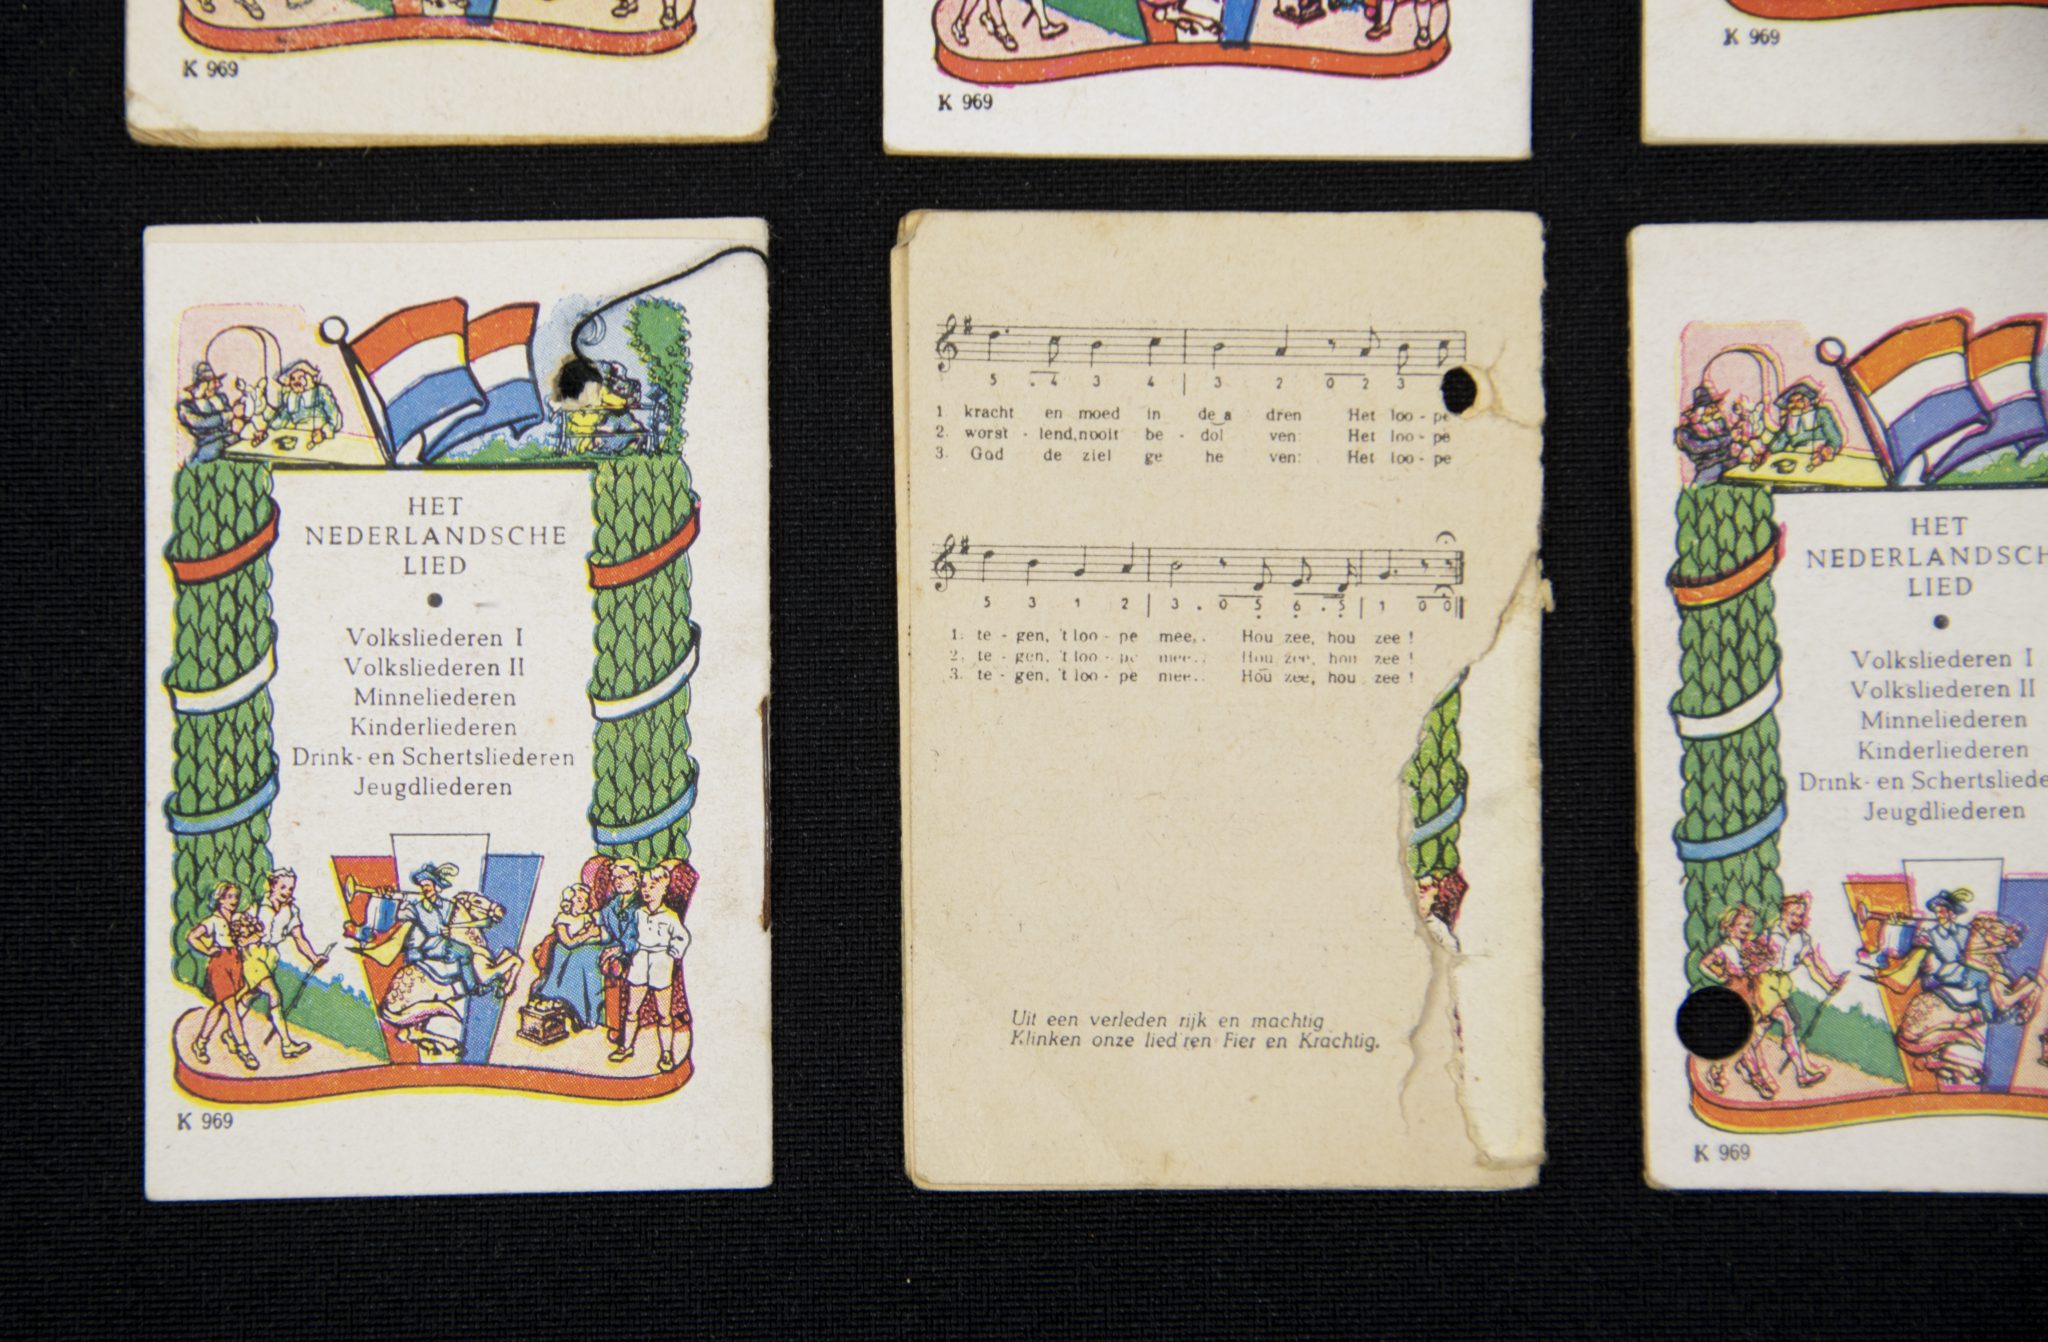 K 969
K 969
K 969
HET
NEDERLANDSCHE
LIED
Volksliederen I
Volksliederen II
Minneliederen
Kinderliederen
Drink- en Schertsliederen
Jeugdliederen
K 969
5 . 4 3 4 | 3 2 0 2 3
1. kracht en moed in de a dren Het loo - pe
2. worst - lend, nooit be - dol ven: Het loo - pe
3. God de ziel ge he ven: Het loo - pe
5 3 1 2 | 3 . 0 5 6 . 5 | 1 0 0 ||
1. te - gen, 't loo - pe mee,. Hou zee, hou zee !
2. te - gen, 't loo - pe mee.. Hou zee, hou zee !
3. te - gen, 't loo - pe mee.. Hou zee, hou zee !
Uit een verleden rijk en machtig
Klinken onze lied'ren Fier en Krachtig.
HET
NEDERLANDSCH
LIED
Volksliederen I
Volksliederen II
Minneliederen
Kinderliederen
Drink- en Schertsliede
Jeugdliederen
K 969